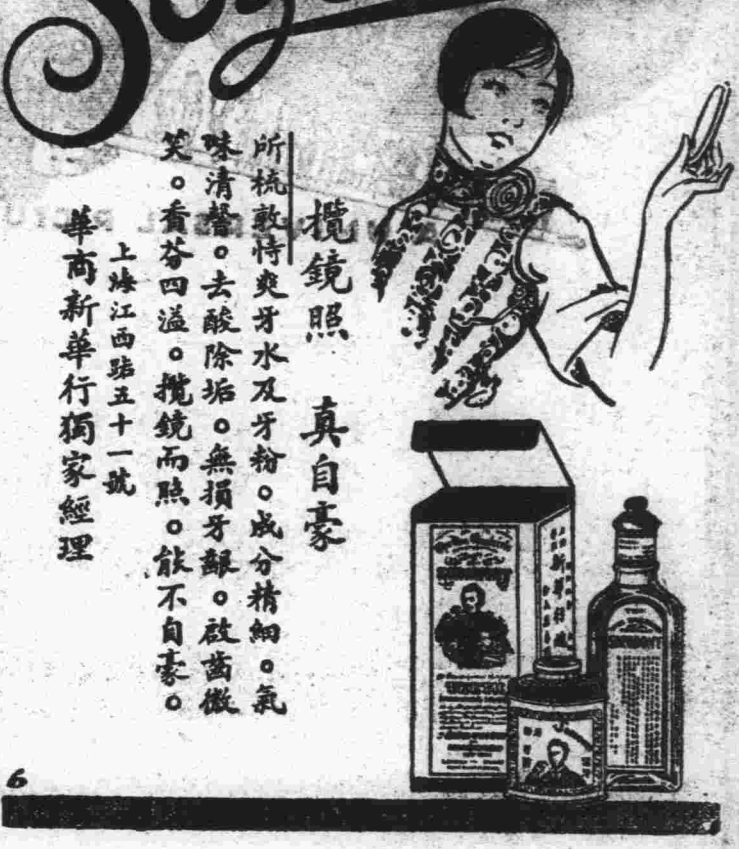 攬鏡照 真自豪
所梳敦恃爽牙水及牙粉。成分精細。氣
味清馨。去酸除垢。無損牙齦。啟齒微
笑。香芬四溢。攬鏡而照。能不自豪。
上海江西路五十一號
華商新華行獨家經理
6